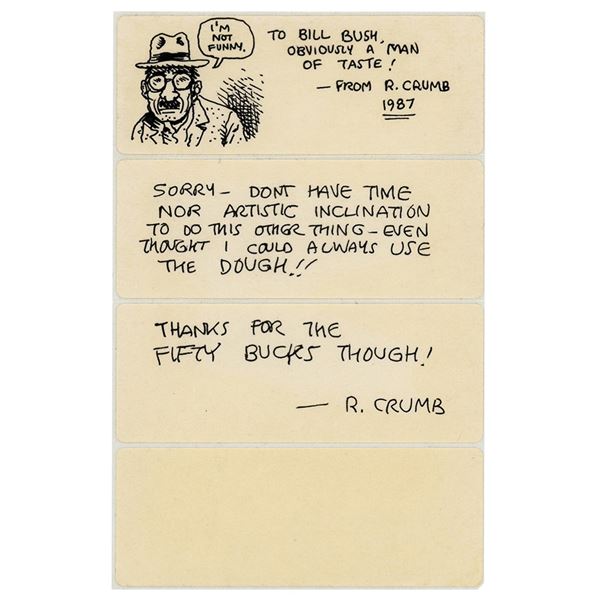 I'M
NOT
FUNNY.
TO BILL BUSH,
OBVIOUSLY A MAN
OF TASTE!
— FROM R. CRUMB
1987
SORRY — DONT HAVE TIME
NOR ARTISTIC INCLINATION
TO DO THIS OTHER THING — EVEN
THOUGHT I COULD ALWAYS USE
THE DOUGH!!
THANKS FOR THE
FIFTY BUCKS THOUGH!
— R. CRUMB